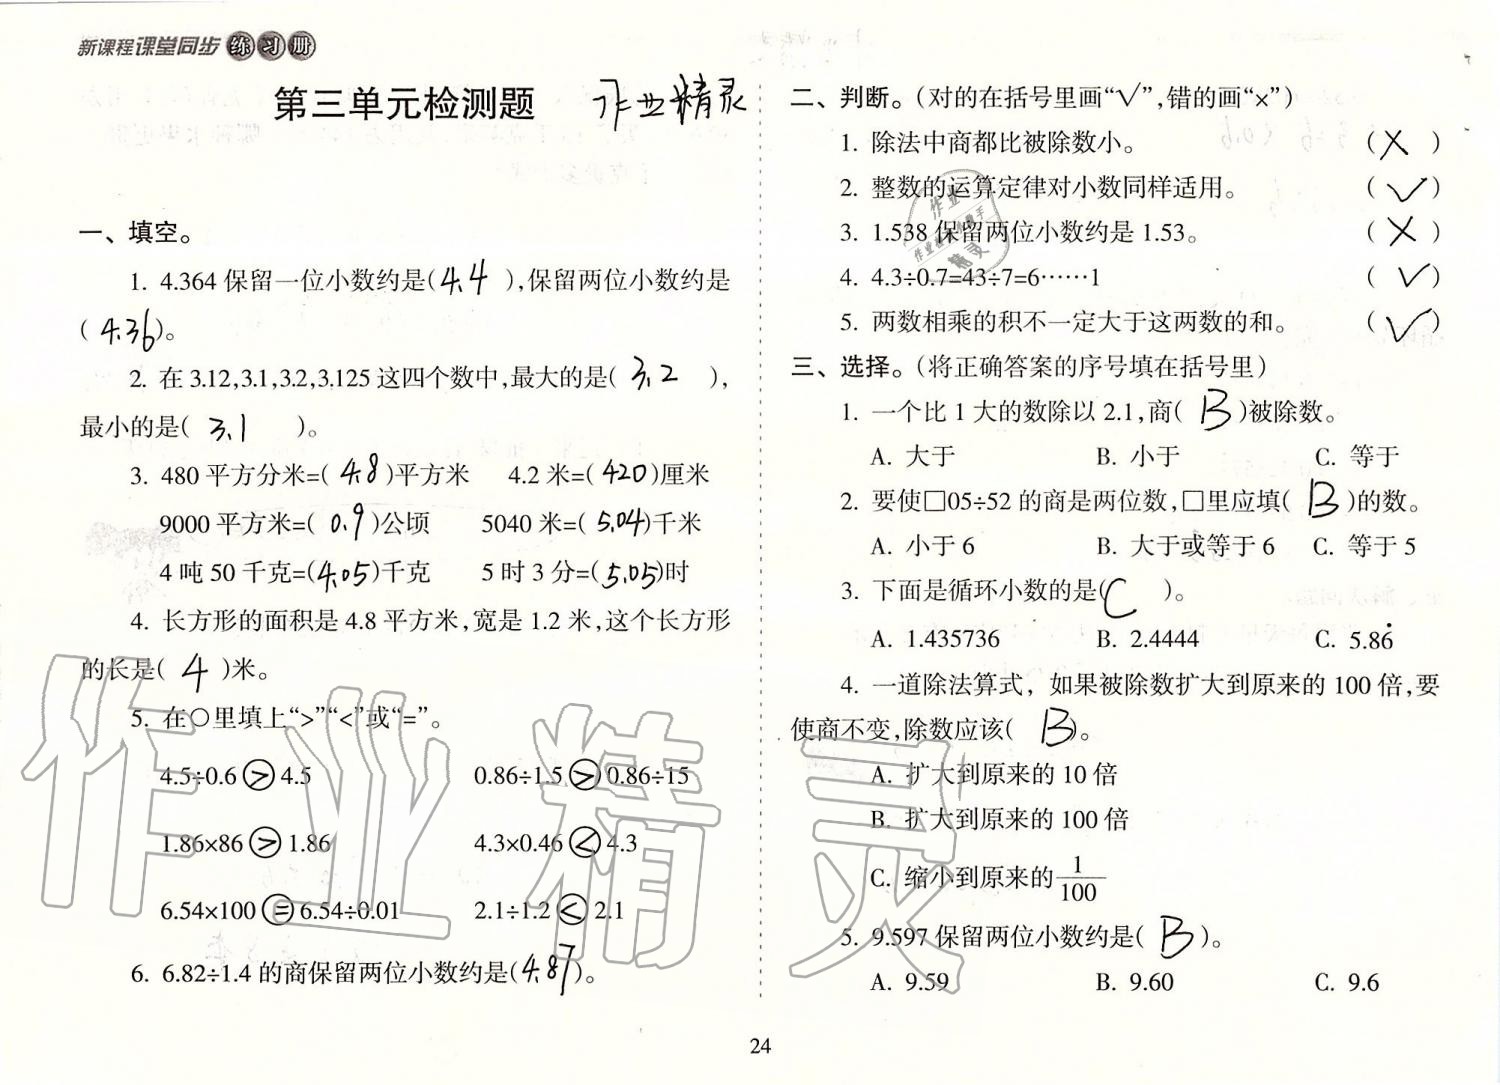 新课程课堂同步练习册
第三单元检测题 作业精灵
一、填空。
1. 4.364保留一位小数约是( 4.4 ),保留两位小数约是
( 4.36 )。
2. 在3.12,3.1,3.2,3.125这四个数中,最大的是( 3.2 ),
最小的是( 3.1 )。
3. 480平方分米=( 4.8 )平方米 4.2米=( 420 )厘米
9000平方米=( 0.9 )公顷 5040米=( 5.04 )千米
4吨50千克=( 4.05 )千克 5时3分=( 5.05 )时
4. 长方形的面积是4.8平方米,宽是1.2米,这个长方形
的长是( 4 )米。
5. 在○里填上“>”“<”或“=”。
4.5÷0.6 > 4.5 0.86÷1.5 > 0.86÷15
1.86×86 > 1.86 4.3×0.46 < 4.3
6.54×100 = 6.54÷0.01 2.1÷1.2 < 2.1
6. 6.82÷1.4的商保留两位小数约是( 4.87 )。
二、判断。(对的在括号里画“√”,错的画“×”)
1. 除法中商都比被除数小。 ( × )
2. 整数的运算定律对小数同样适用。 ( √ )
3. 1.538保留两位小数约是1.53。 ( × )
4. 4.3÷0.7=43÷7=6……1 ( √ )
5. 两数相乘的积不一定大于这两数的和。 ( √ )
三、选择。(将正确答案的序号填在括号里)
1. 一个比1大的数除以2.1,商( B )被除数。
A. 大于 B. 小于 C. 等于
2. 要使□05÷52的商是两位数,□里应填( B )的数。
A. 小于6 B. 大于或等于6 C. 等于5
3. 下面是循环小数的是( C )。
A. 1.435736 B. 2.4444 C. 5.86̇
4. 一道除法算式，如果被除数扩大到原来的100倍,要
使商不变,除数应该( B )。
A. 扩大到原来的10倍
B. 扩大到原来的100倍
C. 缩小到原来的1/100
5. 9.597保留两位小数约是( B )。
A. 9.59 B. 9.60 C. 9.6
24
作业精灵